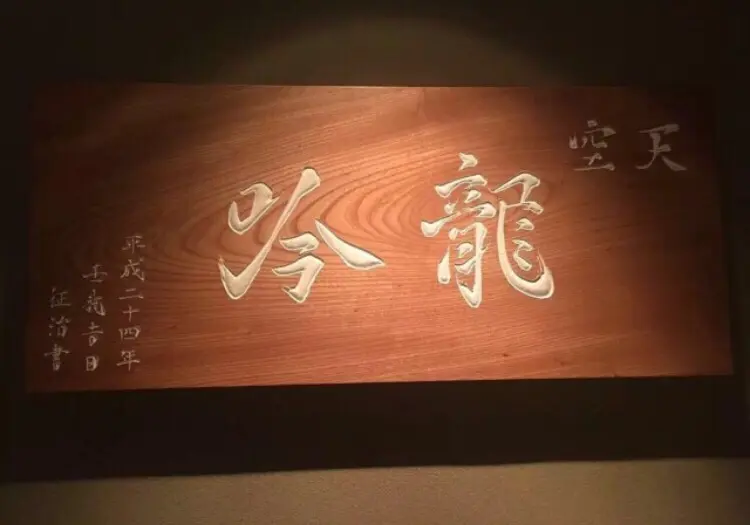 天空
龍吟
平成二十四年
壬辰吉日
征治書